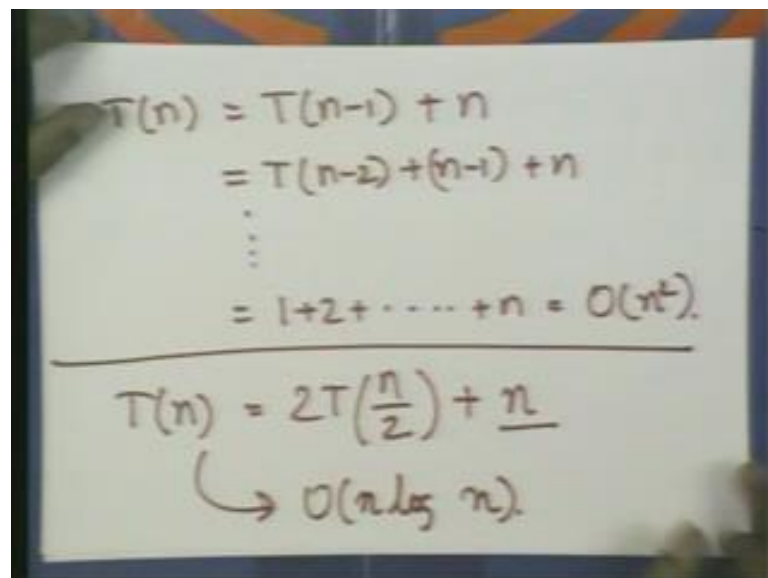 T(n) = T(n-1) + n
= T(n-2) + (n-1) + n
⋮
= 1+2+ ····· +n = O(n²).
T(n) = 2T(n/2) + n
↳ O(n log n).